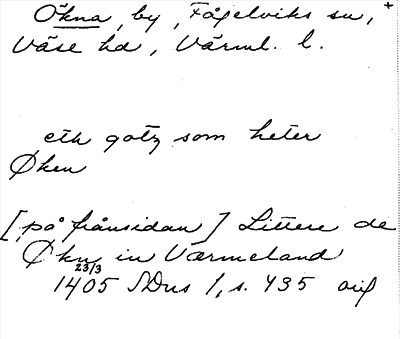 Ökna, by, Fågelviks sn, +
Väse hd, Värml. l.
eth gotz som heter
Øken
[på frånsidan] Littere de
Økn in Værmeland
23/3
1405 SDns 1, s. 435 avs